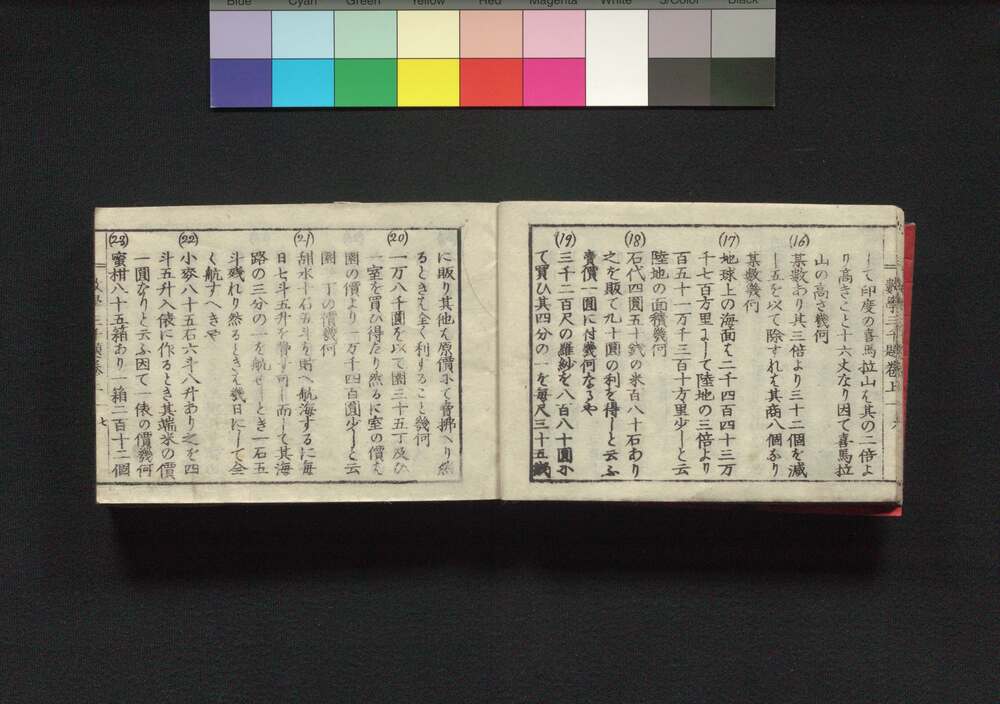 Blue Cyan Green Yellow Red Magenta White 3/Color Black
して印度の喜馬拉山は其の二倍よ
り高きこと十六丈なり因て喜馬拉
山の高さ幾何
(16) 某数あり其三倍より三十二個を減
し五を以て除すれは其商八個なり
某数幾何
(17) 地球上の海面は二千四百四十三万
千七百方里にして陸地の三倍より
百五十一万千三百十方里少しと云
陸地の面積幾何
(18) 石代四圓五十銭の米百八十石あり
之を販て九十圓の利を得しと云ふ
賣價一圓に付幾何なるや
(19) 三千二百尺の羅紗を八百八十圓小
て買ひ其四分の一を毎尺三十五銭
に販り其他を原價小て賣拂へり然
るときは全く利すること幾何
(20) 一万八千圓を以て園三十五丁及ひ
一室を買ひ得たり然るに室の價は
園の價より一万千四百圓少しと云
園一丁の價幾何
(21) 水十石五斗を貯へ航海するに毎
日七斗五升を費す可し而して其海
路の三分の一を航せしとき一石五
斗残れり然るときは幾日にして全
く航すへきや
(22) 小麥八十五石六斗八升あり之を四
斗五升入俵に作るとき其端米の價
一圓なりと云ふ因て一俵の價幾何
(23) 蜜柑八十五箱あり一箱二百十二個
七